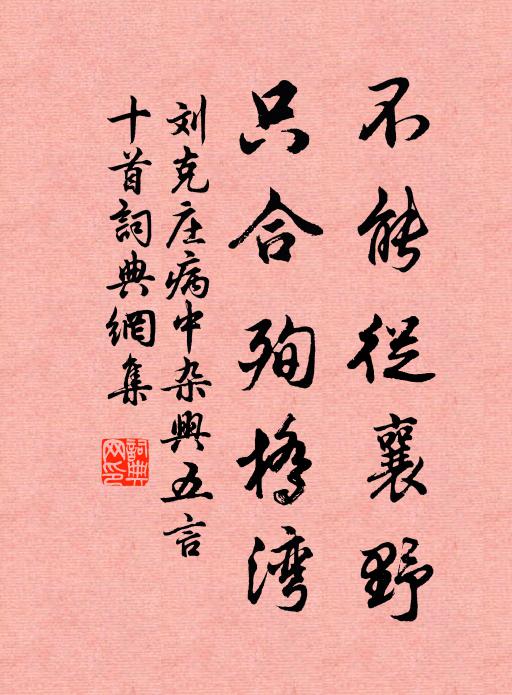 不能從襄野
只合殉橋湾
刘克庄病中杂興五言
十首詞典網集
詞典
网印